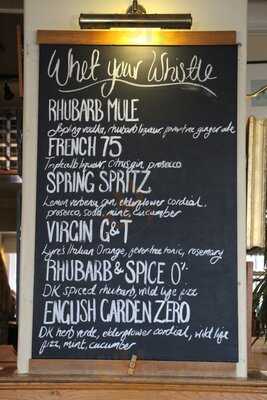 Whet your Whistle
RHUBARB MULE
vodka, rhubarb liqueur, fevertree ginger ale
FRENCH 75
liqueur, citrus gin, prosecco
SPRING SPRITZ
Lemon verbena gin, elderflower cordial,
prosecco, soda, mint, cucumber
VIRGIN G&T
Lyre's Italian Orange, fever tree tonic, rosemary
RHUBARB & SPICE 0%
DK spiced rhubarb, wild life fizz
ENGLISH GARDEN ZERO
DK herb verde, elderflower cordial, wild life
fizz, mint, cucumber